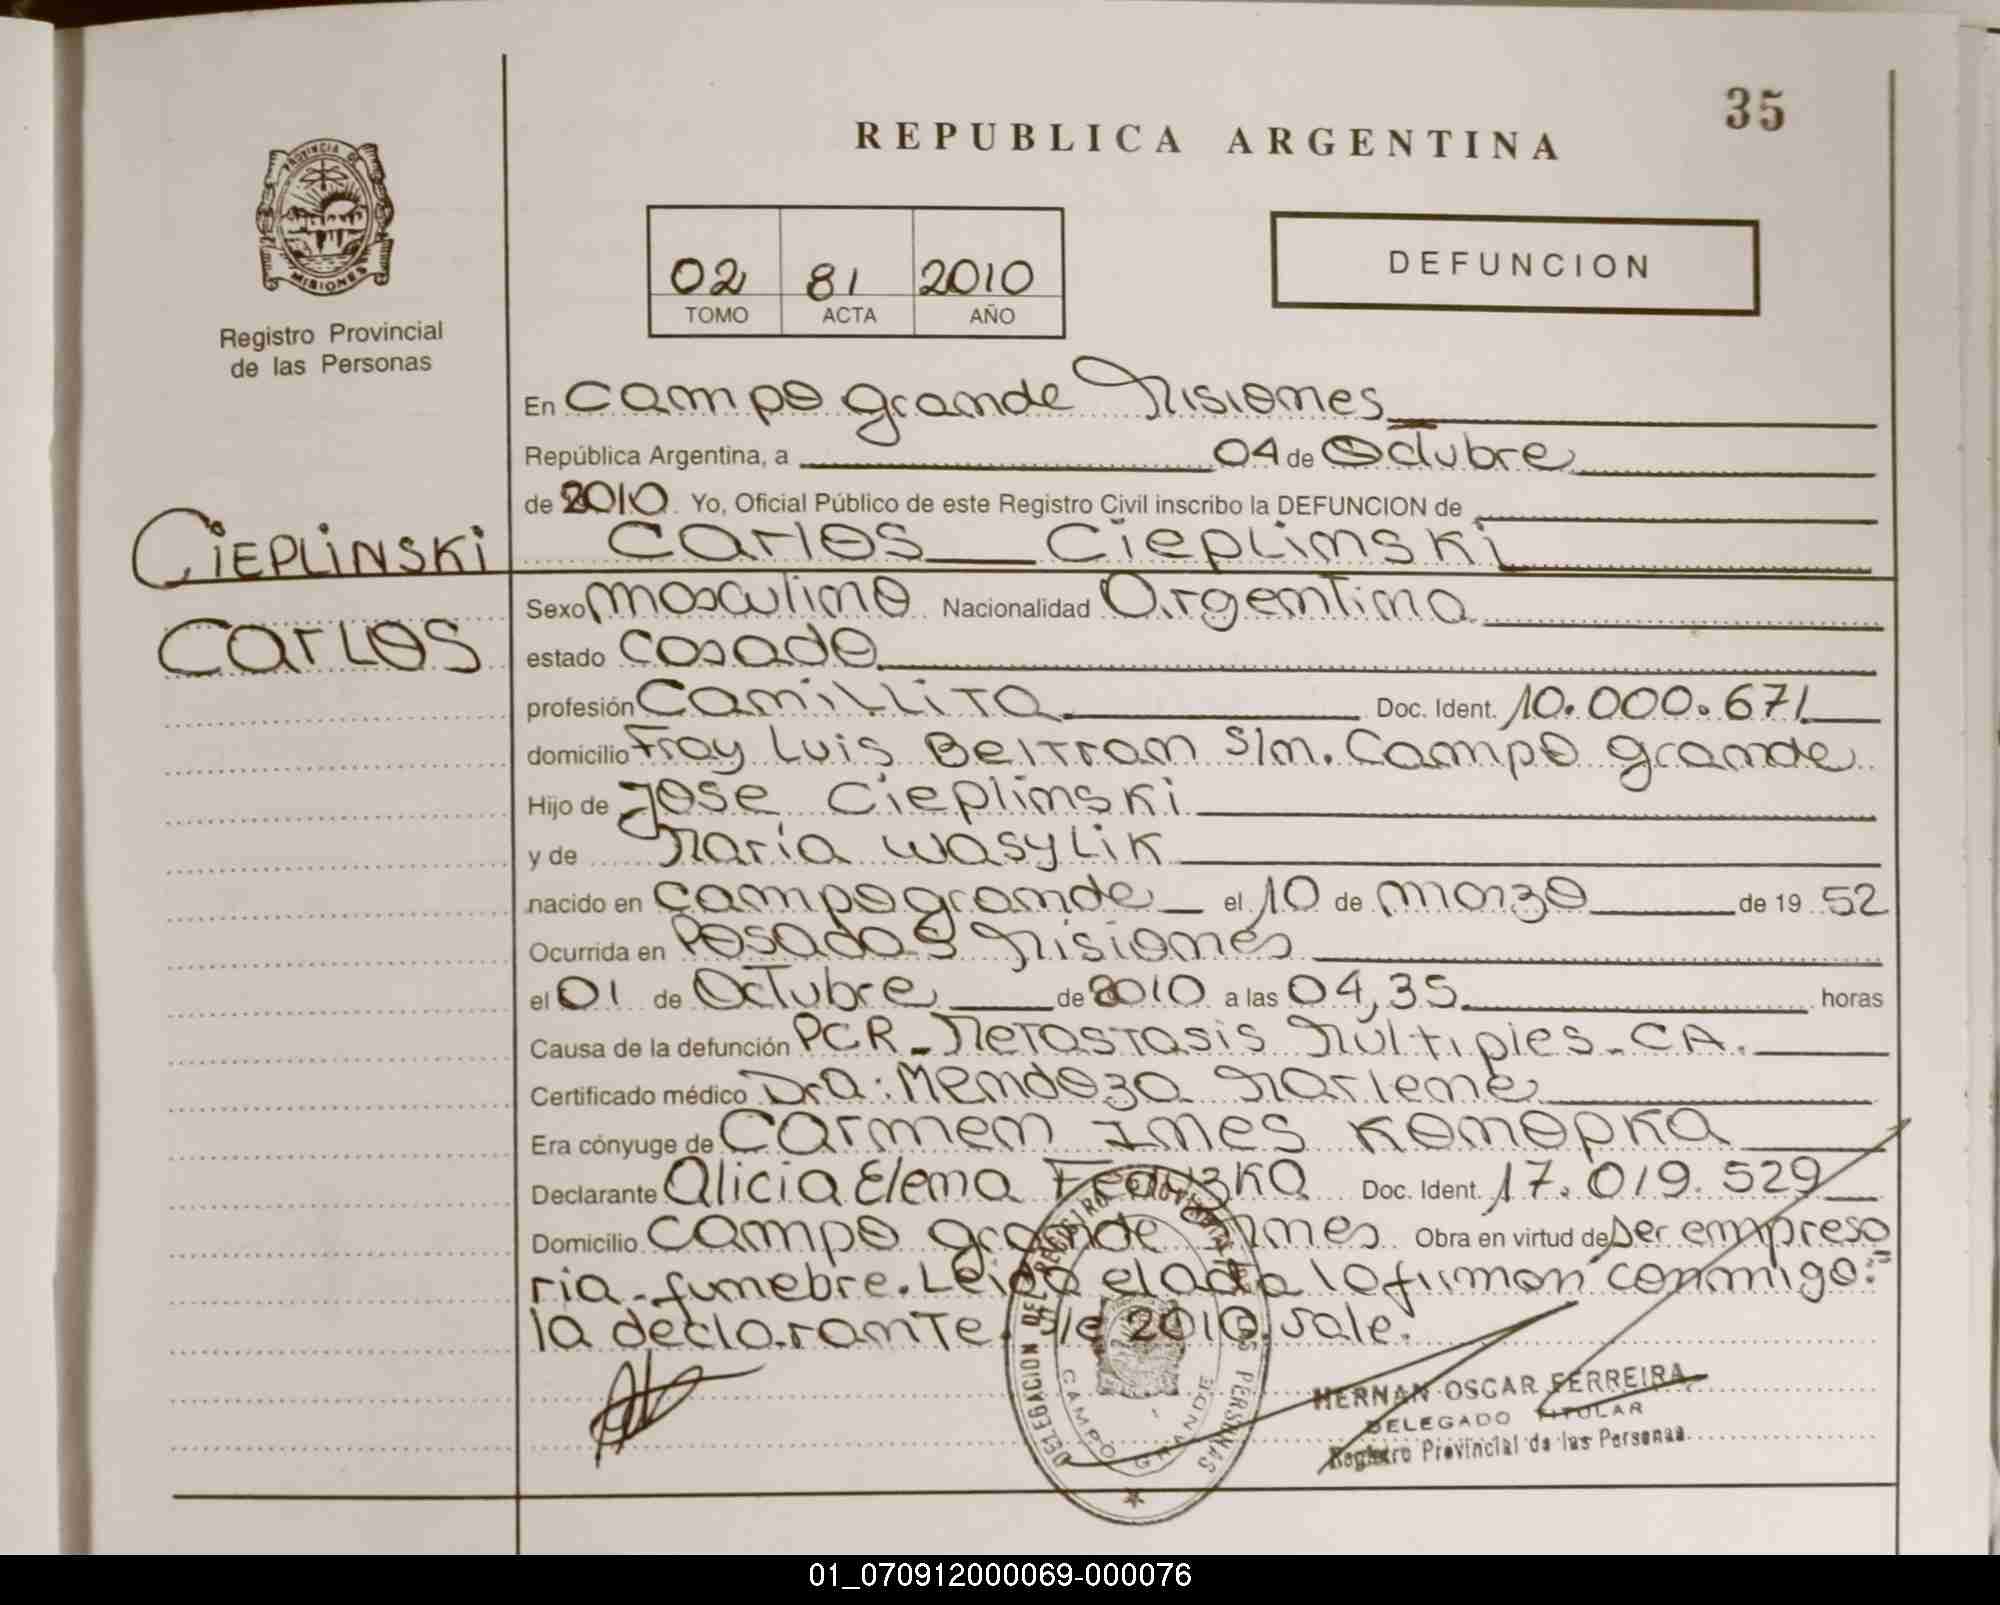 35
REPUBLICA ARGENTINA
PROVINCIA DE
MISIONES
Registro Provincial
de las Personas
02 81 2010
TOMO ACTA AÑO
DEFUNCION
En Campo grande Misiones
República Argentina, a 04 de Octubre
de 2010. Yo, Oficial Público de este Registro Civil inscribo la DEFUNCION de
CIEPLINSKI
Carlos Cieplinski
CARLOS
Sexo masculino Nacionalidad Argentina
estado casado
profesión Camillita Doc. Ident. 10.000.671
domicilio Fray Luis Beltran S/n. Campo grande
Hijo de Jose Cieplinski
y de Maria Wasylik
nacido en Campo grande el 10 de marzo de 19 52
Ocurrida en Posadas Misiones
el 01 de Octubre de 2010 a las 04,35 horas
Causa de la defunción PCR - Metastasis Múltiples - CA.
Certificado médico Dra: Mendoza Marlene
Era cónyuge de Carmen Ines Konopka
Declarante Alicia Elena Doc. Ident. 17.019.529
Domicilio Campo grande Mnes Obra en virtud de ser empresa
ria - funebre. Leida el acta la firman conmigo:=
la declarante. S/e 2010. vale.
DELEGACION DEL REGISTRO PROVINCIAL DE LAS PERSONAS
CAMPO GRANDE
HERNAN OSCAR FERREIRA
DELEGADO TITULAR
Registro Provincial de las Personas
01_070912000069-000076